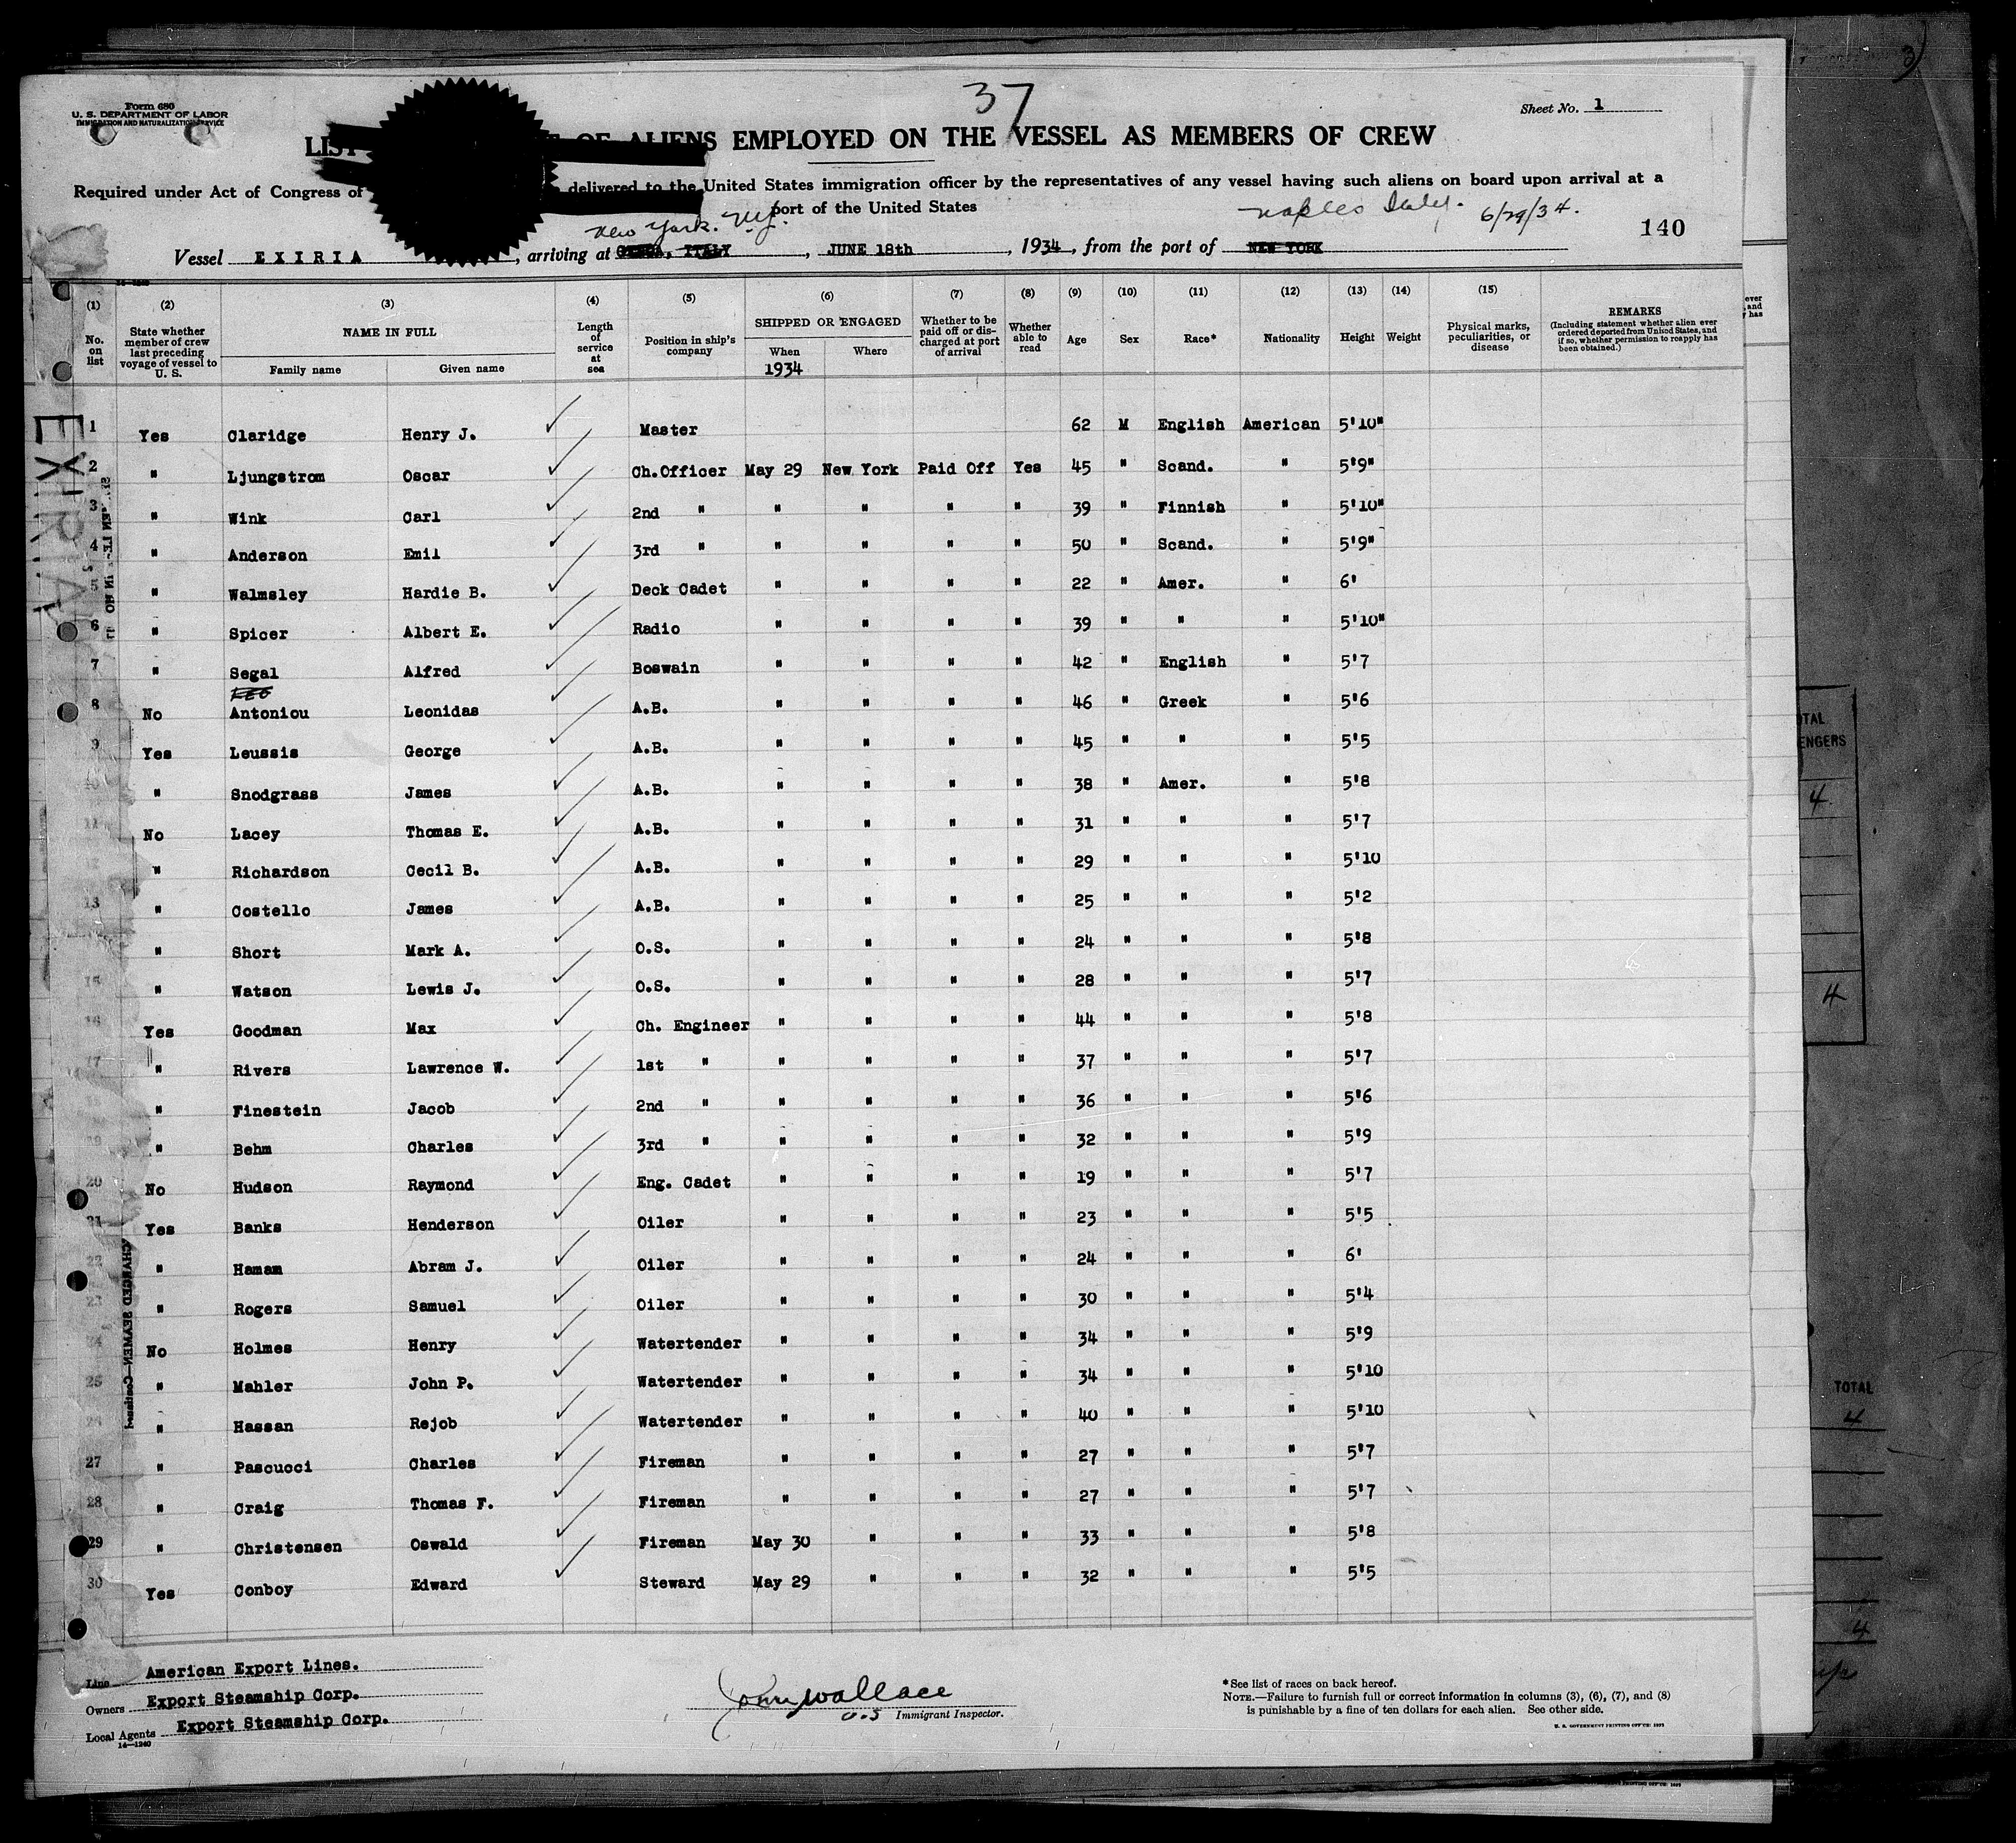 37
Form 680
U. S. DEPARTMENT OF LABOR
IMMIGRATION AND NATURALIZATION SERVICE
Sheet No. 1
LIST OF ALIENS EMPLOYED ON THE VESSEL AS MEMBERS OF CREW
Required under Act of Congress of delivered to the United States immigration officer by the representatives of any vessel having such aliens on board upon arrival at a
port of the United States
New York. N.Y. Naples Italy. 6/29/34. 140
Vessel EXIRIA, arriving at GENOA, ITALY, JUNE 18th, 1934, from the port of NEW YORK
(1) (2) (3) (4) (5) (6) (7) (8) (9) (10) (11) (12) (13) (14) (15)
No. on list
State whether member of crew last preceding voyage of vessel to U. S.
NAME IN FULL
Family name Given name
Length of service at sea
Position in ship's company
SHIPPED OR ENGAGED
When Where
1934
Whether to be paid off or discharged at port of arrival
Whether able to read
Age
Sex
Race*
Nationality
Height
Weight
Physical marks, peculiarities, or disease
REMARKS
(Including statement whether alien ever ordered deported from United States, and if so, whether permission to reapply has been obtained.)
1 Yes Claridge Henry J. Master 62 M English American 5'10"
2 " Ljungstrom Oscar Ch.Officer May 29 New York Paid Off Yes 45 " Scand. " 5'9"
3 " Wink Carl 2nd " " " " " 39 " Finnish " 5'10"
4 " Anderson Emil 3rd " " " " " 50 " Scand. " 5'9"
5 " Walmsley Hardie B. Deck Cadet " " " " 22 " Amer. " 6'
6 " Spicer Albert E. Radio " " " " 39 " " " 5'10"
7 " Segal Alfred Boswain " " " " 42 " English " 5'7
8 No Antoniou Leonidas A.B. " " " " 46 " Greek " 5'6
9 Yes Leussis George A.B. " " " " 45 " " " 5'5
10 " Snodgrass James A.B. " " " " 38 " Amer. " 5'8
11 No Lacey Thomas E. A.B. " " " " 31 " " " 5'7
12 " Richardson Cecil B. A.B. " " " " 29 " " " 5'10
13 " Costello James A.B. " " " " 25 " " " 5'2
" Short Mark A. O.S. " " " " 24 " " " 5'8
15 " Watson Lewis J. O.S. " " " " 28 " " " 5'7
16 Yes Goodman Max Ch. Engineer " " " " 44 " " " 5'8
17 " Rivers Lawrence W. 1st " " " " " 37 " " " 5'7
18 " Finestein Jacob 2nd " " " " " 36 " " " 5'6
19 " Behm Charles 3rd " " " " " 32 " " " 5'9
20 No Hudson Raymond Eng. Cadet " " " " 19 " " " 5'7
21 Yes Banks Henderson Oiler " " " " 23 " " " 5'5
22 " Hamam Abram J. Oiler " " " " 24 " " " 6'
23 " Rogers Samuel Oiler " " " " 30 " " " 5'4
24 No Holmes Henry Watertender " " " " 34 " " " 5'9
25 " Mahler John P. Watertender " " " " 34 " " " 5'10
26 " Hassan Rejob Watertender " " " " 40 " " " 5'10
27 " Pascucci Charles Fireman " " " " 27 " " " 5'7
28 " Craig Thomas F. Fireman " " " " 27 " " " 5'7
29 " Christensen Oswald Fireman May 30 " " " 33 " " " 5'8
30 Yes Conboy Edward Steward May 29 " " " 32 " " " 5'5
EXIRIA
Line American Export Lines.
Owners Export Steamship Corp.
Local Agents Export Steamship Corp.
14—1240
John Wallace
U.S Immigrant Inspector.
*See list of races on back hereof.
NOTE.—Failure to furnish full or correct information in columns (3), (6), (7), and (8)
is punishable by a fine of ten dollars for each alien. See other side.
U. S. GOVERNMENT PRINTING OFFICE: 1932
TOTAL
4
4
TOTAL
4
4